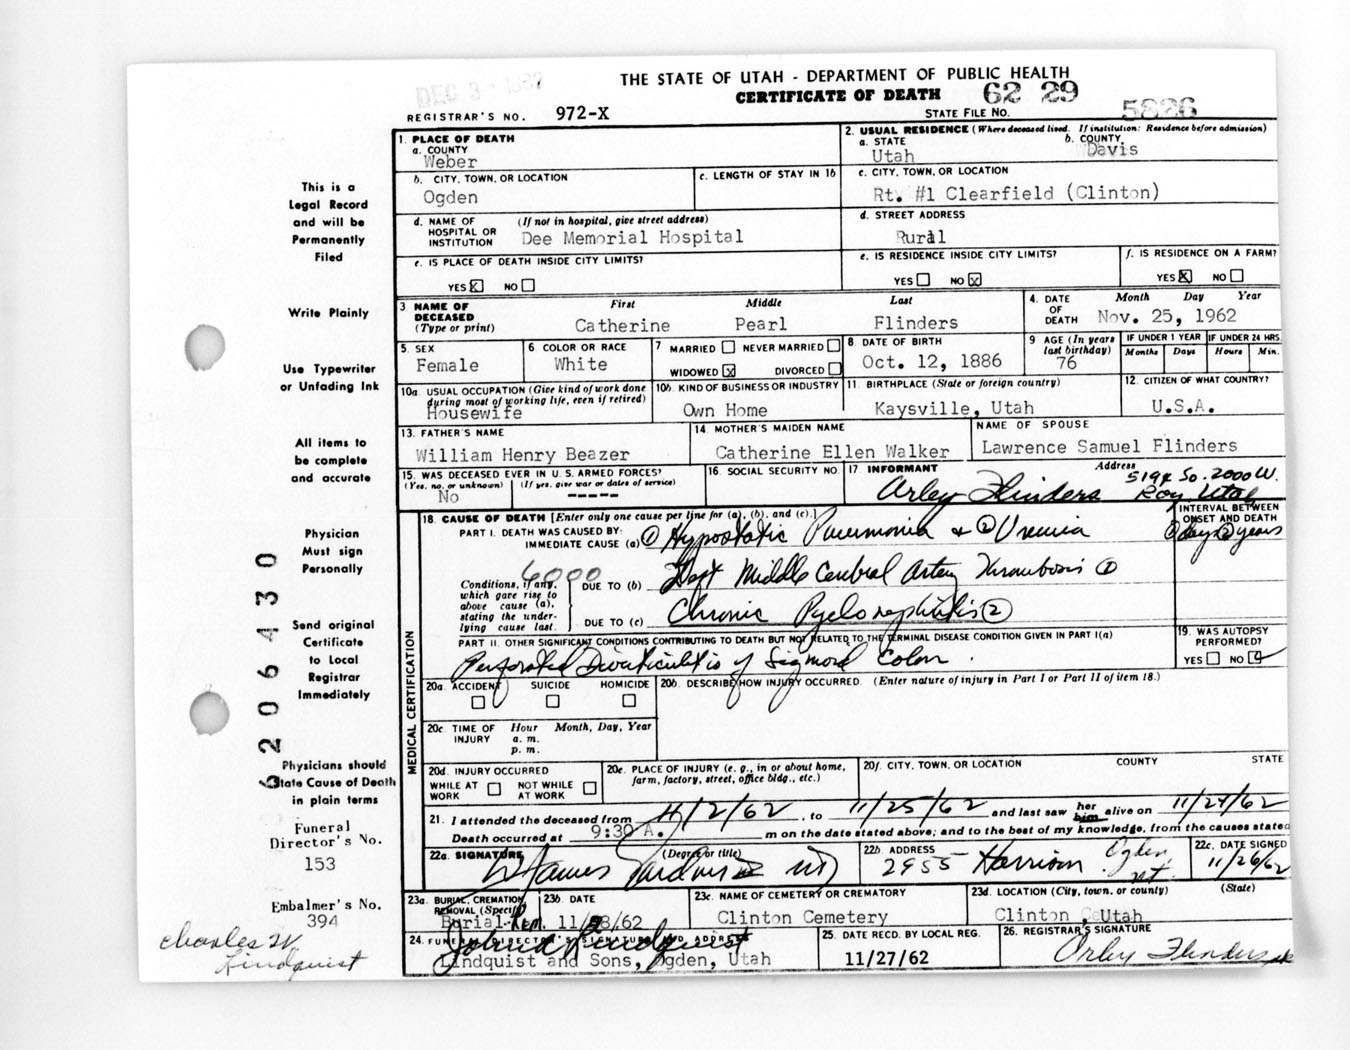 THE STATE OF UTAH - DEPARTMENT OF PUBLIC HEALTH
DEC 3 - 1962
CERTIFICATE OF DEATH 62 29
REGISTRAR'S NO. 972-X STATE FILE NO. 5826
1. PLACE OF DEATH
a. COUNTY
Weber
2. USUAL RESIDENCE (Where deceased lived. If institution: Residence before admission)
a. STATE b. COUNTY
Utah Davis
b. CITY, TOWN, OR LOCATION
Ogden
c. LENGTH OF STAY IN 1b
c. CITY, TOWN, OR LOCATION
Rt. #1 Clearfield (Clinton)
d. NAME OF HOSPITAL OR INSTITUTION (If not in hospital, give street address)
Dee Memorial Hospital
d. STREET ADDRESS
Rural
e. IS PLACE OF DEATH INSIDE CITY LIMITS?
YES ☒ NO ☐
e. IS RESIDENCE INSIDE CITY LIMITS?
YES ☐ NO ☒
f. IS RESIDENCE ON A FARM?
YES ☒ NO ☐
3 NAME OF DECEASED (Type or print)
First Middle Last
Catherine Pearl Flinders
4. DATE OF DEATH Month Day Year
Nov. 25, 1962
5. SEX
Female
6 COLOR OR RACE
White
7 MARRIED ☐ NEVER MARRIED ☐
WIDOWED ☒ DIVORCED ☐
8. DATE OF BIRTH
Oct. 12, 1886
9 AGE (In years last birthday)
76
IF UNDER 1 YEAR IF UNDER 24 HRS.
Months Days Hours Min.
10a. USUAL OCCUPATION (Give kind of work done during most of working life, even if retired)
Housewife
10b. KIND OF BUSINESS OR INDUSTRY
Own Home
11. BIRTHPLACE (State or foreign country)
Kaysville, Utah
12. CITIZEN OF WHAT COUNTRY?
U.S.A.
13. FATHER'S NAME
William Henry Beazer
14. MOTHER'S MAIDEN NAME
Catherine Ellen Walker
NAME OF SPOUSE
Lawrence Samuel Flinders
15. WAS DECEASED EVER IN U.S. ARMED FORCES?
(Yes, no, or unknown) (If yes, give war or dates of service)
No -----
16. SOCIAL SECURITY NO.
17 INFORMANT Address
Arley Flinders 5194 So. 2000 W. Roy Utah
18. CAUSE OF DEATH [Enter only one cause per line for (a), (b), and (c).]
INTERVAL BETWEEN ONSET AND DEATH
PART I. DEATH WAS CAUSED BY:
IMMEDIATE CAUSE (a) ① Hypostatic Pneumonia & ② Uremia
① days ② years
6000
Conditions, if any, which gave rise to above cause (a), stating the underlying cause last.
DUE TO (b) Left Middle Cerebral Artery Thrombosis ①
DUE TO (c) Chronic Pyelonephritis ②
PART II. OTHER SIGNIFICANT CONDITIONS CONTRIBUTING TO DEATH BUT NOT RELATED TO THE TERMINAL DISEASE CONDITION GIVEN IN PART I(a)
Perforated Diverticulitis of Sigmoid Colon.
19. WAS AUTOPSY PERFORMED?
YES ☐ NO ☑
MEDICAL CERTIFICATION
20a. ACCIDENT SUICIDE HOMICIDE
☐ ☐ ☐
20b. DESCRIBE HOW INJURY OCCURRED. (Enter nature of injury in Part I or Part II of item 18.)
20c. TIME OF INJURY Hour Month, Day, Year
a. m.
p. m.
20d. INJURY OCCURRED
WHILE AT WORK ☐ NOT WHILE AT WORK ☐
20e. PLACE OF INJURY (e. g., in or about home, farm, factory, street, office bldg., etc.)
20f. CITY, TOWN, OR LOCATION COUNTY STATE
21. I attended the deceased from 11/2/62, to 11/25/62 and last saw her him alive on 11/24/62
Death occurred at 9:30 A. m on the date stated above; and to the best of my knowledge, from the causes stated
22a. SIGNATURE (Degree or title)
22b. ADDRESS
2955 Harrison Ogden, Ut.
22c. DATE SIGNED
11/26/62
23a. BURIAL, CREMATION REMOVAL (Specify)
Burial-Rem.
23b. DATE
11/28/62
23c. NAME OF CEMETERY OR CREMATORY
Clinton Cemetery
23d. LOCATION (City, town, or county) (State)
Clinton, Utah
24. FUNERAL DIRECTOR'S SIGNATURE AND ADDRESS
Lindquist and Sons, Ogden, Utah
25. DATE RECD. BY LOCAL REG.
11/27/62
26. REGISTRAR'S SIGNATURE
Orley Flinders
This is a
Legal Record
and will be
Permanently
Filed
Write Plainly
Use Typewriter
or Unfading Ink
All items to
be complete
and accurate
Physician
Must sign
Personally
Send original
Certificate
to Local
Registrar
Immediately
Physicians should
State Cause of Death
in plain terms
Funeral
Director's No.
153
Embalmer's No.
394
Charles W.
Lindquist
6206430